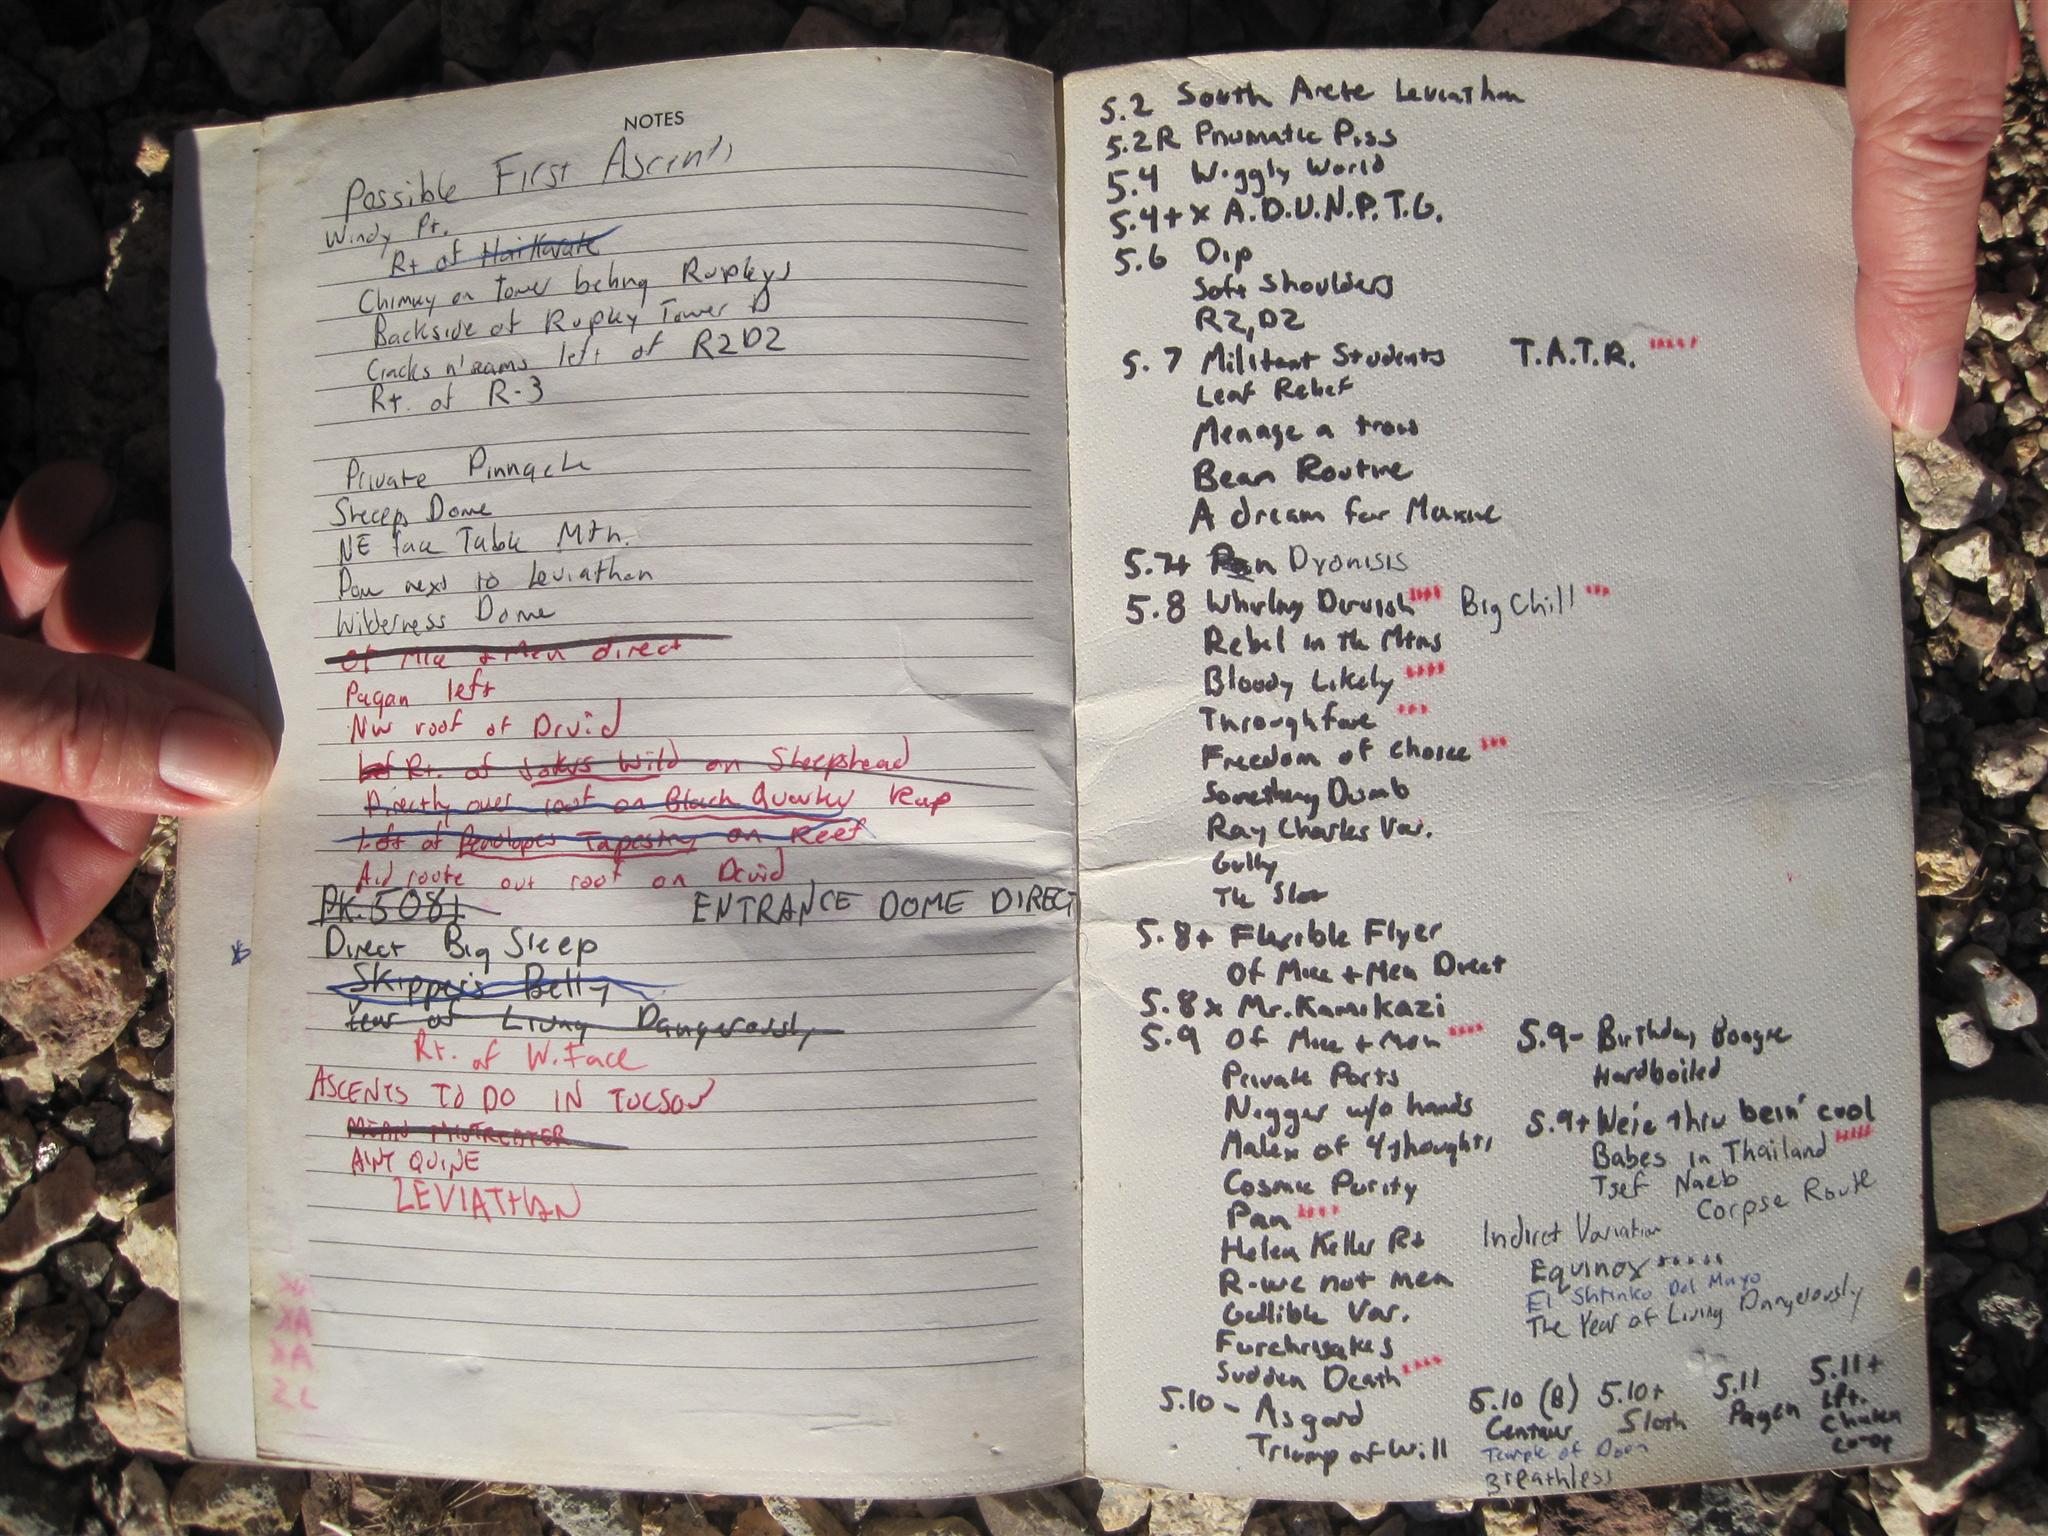 NOTES
Possible First Ascents
Windy Pt.
Rt of Hai Karate
Chimney on tower behing Rupleys
Backside of Rupley Tower
Cracks n' seams left of R2D2
Rt. of R-3
Private Pinnacle
Sheeps Dome
NE face Table Mtn.
next to Leviathan
Wilderness Dome
Of Mice + Men direct
Pagan left
NW roof of Druid
Rt. of Jokers Wild on Sheepshead
Directly over roof on Black Quacker Reap
Left of Penelopes Tapestry on Reef
Aid route out roof on Druid
PK. 5081 ENTRANCE DOME DIRECT
Direct Big Sleep
Skipper's Belly
Year of Living Dangerously
Rt. of W. Face
ASCENTS TO DO IN TUCSON
MEAN MISTREATER
LEVIATHAN
5.2 South Arete Leviathan
5.2R Pnumatic Piss
5.4 Wiggly World
5.4+ x A.D.U.N.P.T.G.
5.6 Dip
Soft Shoulders
R2,D2
5.7 Militant Students T.A.T.R.
Leaf Relief
Menage a trois
Bean Routine
A dream for Maxine
5.7+ Dyonisis
5.8 Whirling Dervish Big Chill
Rebel in the Mtns
Bloody Likely
Throughfare
Freedom of Choice
Something Dumb
Ray Charles Var.
Gully
The Slot
5.8+ Flexible Flyer
Of Mice + Men Direct
5.8x Mr. Kamikazi
5.9 Of Mice + Men 5.9- Birthday Boogie
Private Parts Hardboiled
Nigger w/o hands 5.9+ We're thru bein' cool
Malex of 4thoughts Babes in Thailand
Cosmic Purity Tsef Naeb
Pan Corpse Route
Helen Keller Rt Indirect Variation
R-we not men Equinox *****
Gullible Var. El Shtinko Del Mayo
Furchrisakes The Year of Living Dangerously
Sudden Death
5.10- Asgard 5.10 (B) 5.10+ 5.11 5.11+
Triump of Will Centaur Sloth Pagen Lft.
Temple of Doom Chicken
Breathless co-op